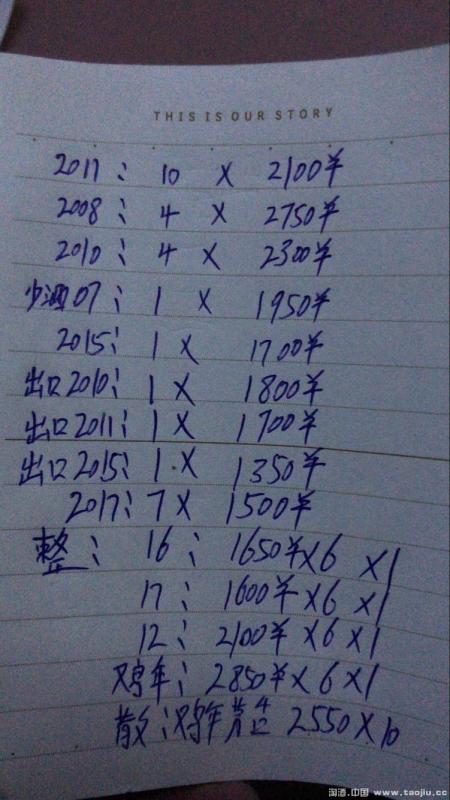 THIS IS OUR STORY
2011: 10 X 2100羊
2008: 4 X 2750羊
2010: 4 X 2300羊
少酒07: 1 X 1950羊
2015: 1 X 1700羊
出口2010: 1 X 1800羊
出口2011: 1 X 1700羊
出口2015: 1 X 1350羊
2017: 7 X 1500羊
整: 16: 1650羊X6 X1
17: 1600羊X6 X1
12: 2100羊X6 X1
鸡年: 2850羊X6 X1
散:鸡年 2550X10
淘酒.中国 www.taojiu.cc